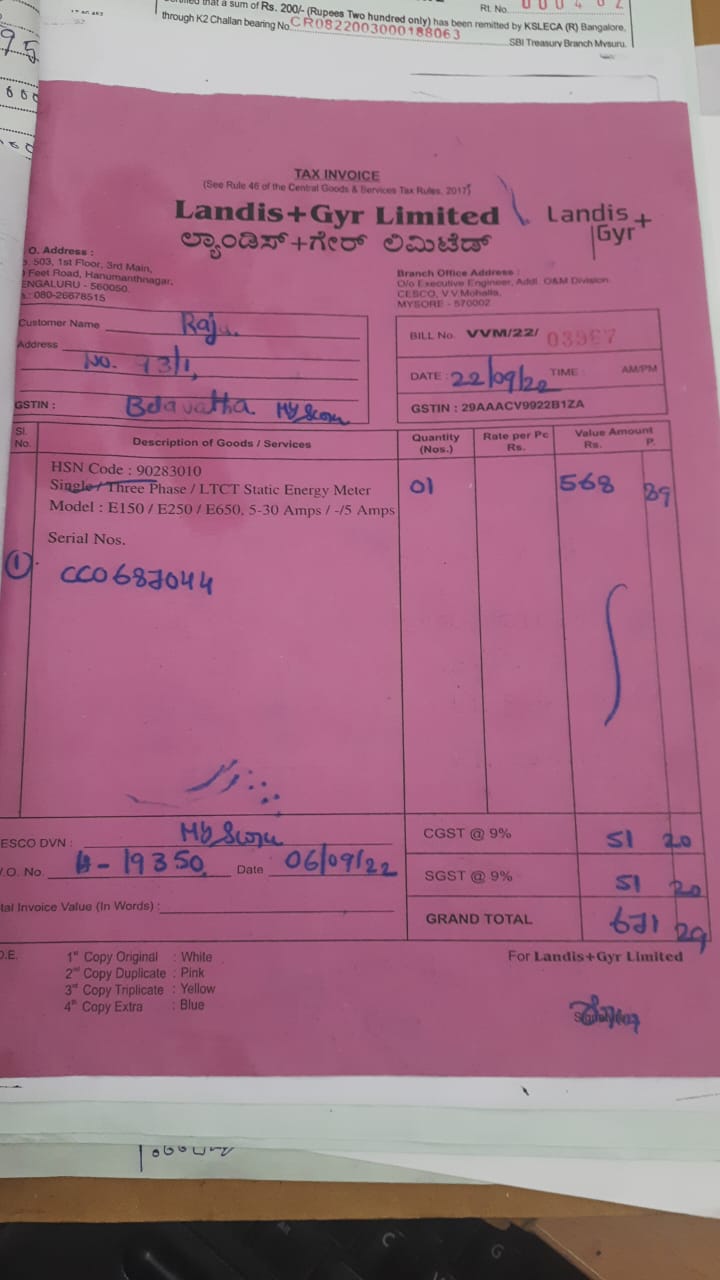 that a sum of Rs. 200/- (Rupees Two hundred only) has been remitted by KSLECA (R) Bangalore,
Rt. No.
through K2 Challan bearing No. CR0822003000188063
SBI Treasury Branch Mysuru.
95
TAX INVOICE
(See Rule 46 of the Central Goods & Services Tax Rules, 2017)
Landis+Gyr Limited
Landis+
Gyr
ಲ್ಯಾಂಡಿಸ್+ಗೇರ್ ಲಿಮಿಟೆಡ್
O. Address :
503, 1st Floor, 3rd Main,
Feet Road, Hanumanthnagar,
ENGALURU - 560050.
: 080-26678515
Branch Office Address :
O/o Executive Engineer, Addl. O&M Division
CESCO, V.V.Mohalla,
MYSORE - 570002
Customer Name Raju.
Address
No. 93/1,
GSTIN : Belavatha Mysore
BILL No. VVM/22/ 03967
DATE : 22/09/22 TIME : AM/PM
GSTIN : 29AAACV9922B1ZA
Sl. No. Description of Goods / Services Quantity (Nos.) Rate per Pc Rs. Value Amount Rs. P.
HSN Code : 90283010
Single / Three Phase / LTCT Static Energy Meter 01 568 89
Model : E150 / E250 / E650, 5-30 Amps / -/5 Amps
Serial Nos.
1 CC0687044
ESCO DVN : Mysore
.O. No. 19350 Date 06/09/22
tal Invoice Value (In Words) :
CGST @ 9% 51 20
SGST @ 9% 51 20
GRAND TOTAL 671 29
O.E. 1st Copy Original : White
2nd Copy Duplicate : Pink
3rd Copy Triplicate : Yellow
4th Copy Extra : Blue
For Landis+Gyr Limited
C
G